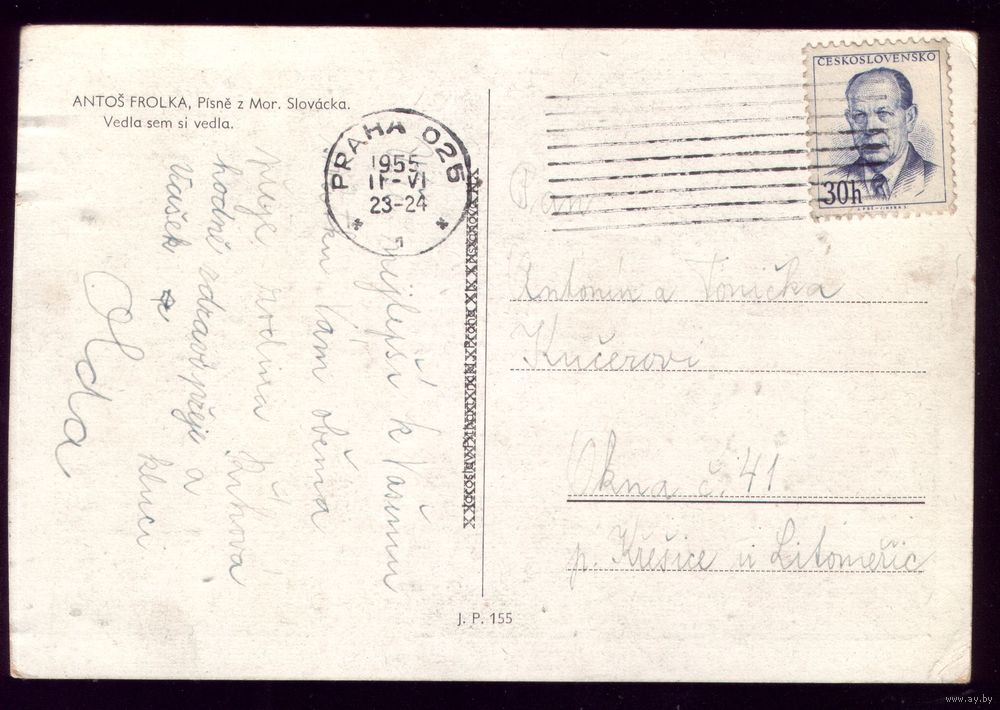 ANTOŠ FROLKA, Písně z Mor. Slovácka.
Vedla sem si vedla.
PRAHA 025
1955
11-VI
23-24
ČESKOSLOVENSKO
30h
nejlepší k Vašemu
Vám oběma
přeje rodina
hodně zdraví přeje a
Vašek a kluci
Olda
Pan
Antonín a Tonička
Kučerovi
Okna č. 41
p. Křešice u Litoměřic
J. P. 155
www.ay.by